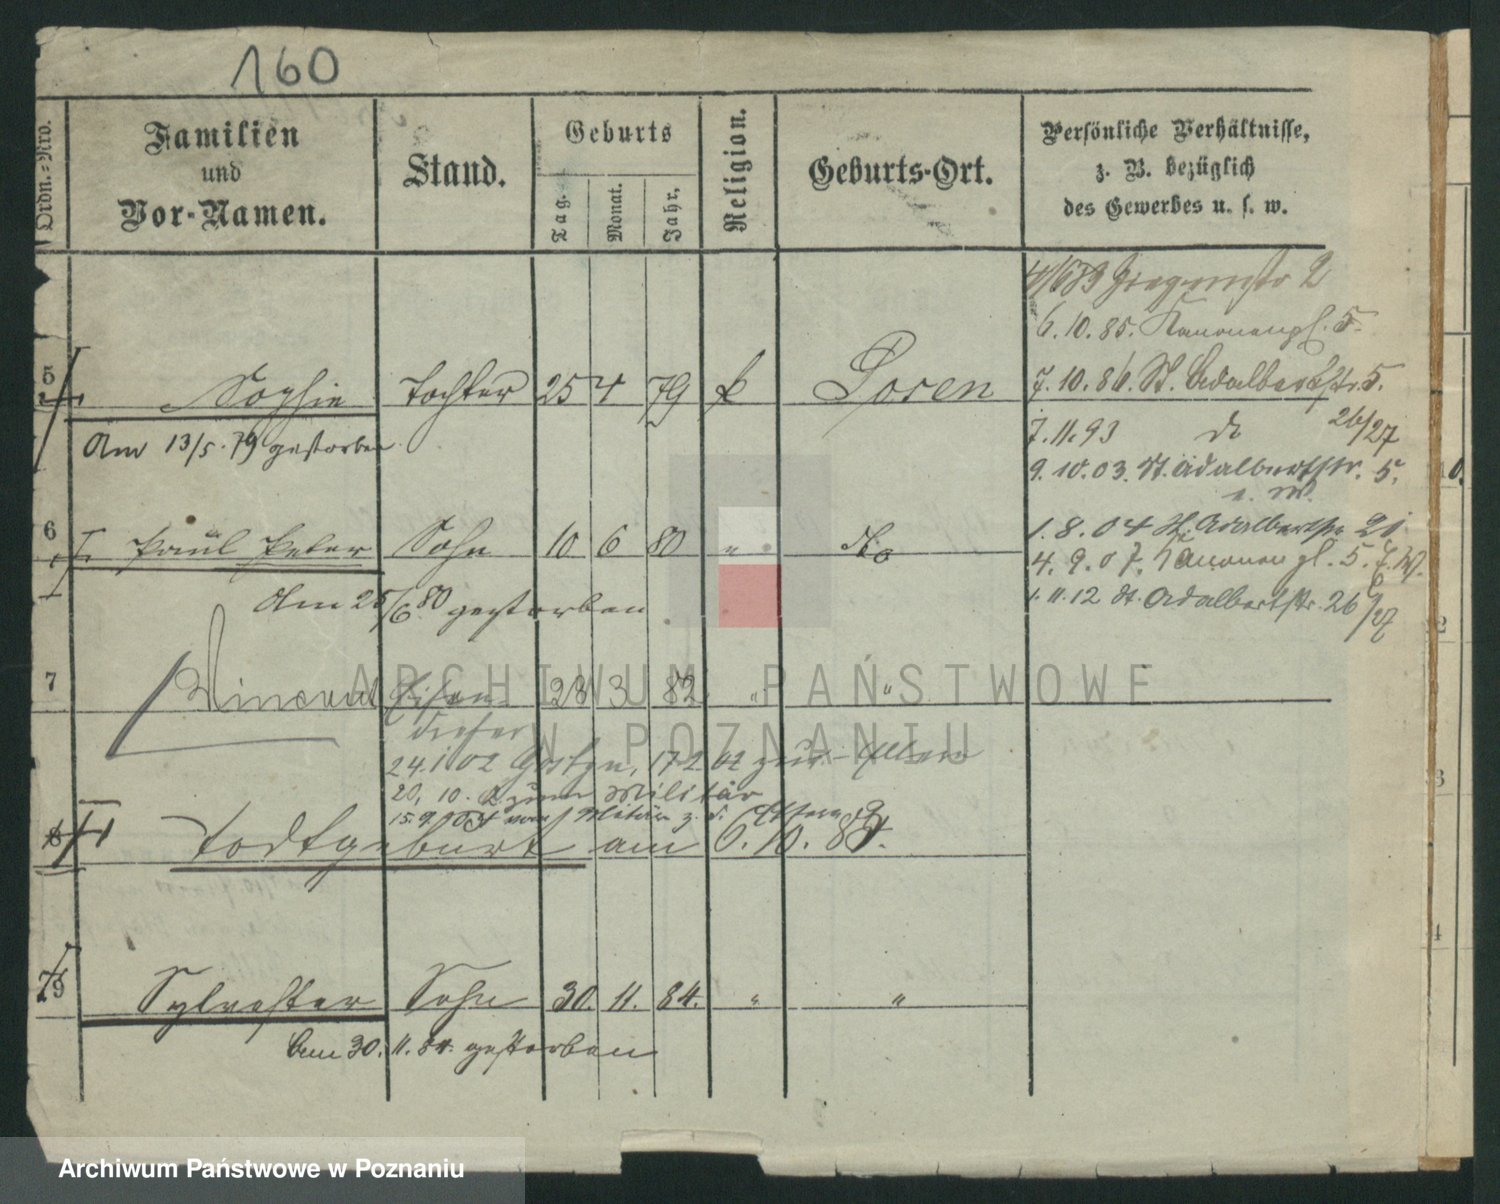 160
Ordn.-Nro.
Familien
und
Vor-Namen.
Stand.
Geburts
Tag.
Monat.
Jahr.
Religion.
Geburts-Ort.
Persönliche Verhältnisse,
z. B. bezüglich
des Gewerbes u. s. w.
2
6.10.85. Kanonenpl. 5.
5 Sophie Tochter 25 4 79 k Posen
7.10.86. St. Adalbertstr. 5.
Am 13/5. 79 gestorben
7.11.93 do 26/27
9.10.03. St. Adalbertstr. 5.
6 Paul Peter Sohn 10 6 80 " do
1.8.04 St. Adalbertstr. 21
4.9.07. Kanonenpl. 5.
1.11.12 St. Adalbertstr. 26/27
Am 25/6 80 gestorben
7 Vincent 23 3 82 " "
24.1.02 17.2.02 zur
20.10. zum Militär
15.9. vom Militär z. d.
8 Todtgeburt am 6.10.83.
9 Sylvester Sohn 30. 11. 84. " "
Am 30. 11. 84. gestorben
ARCHIWUM PAŃSTWOWE
W POZNANIU
Archiwum Państwowe w Poznaniu